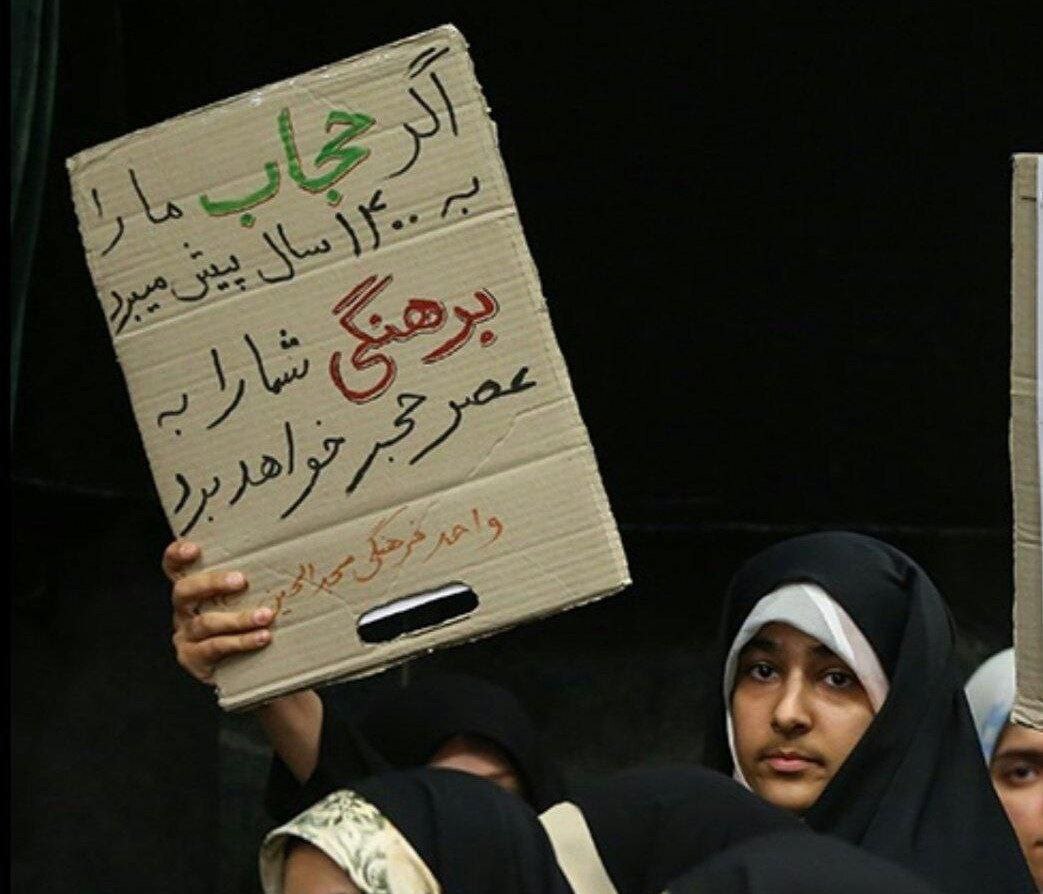 اگر حجاب ما را
به ۱۴۰۰ سال پیش میبرد
برهنگی شما را به
عصر حجر خواهد برد
واحد فرهنگی